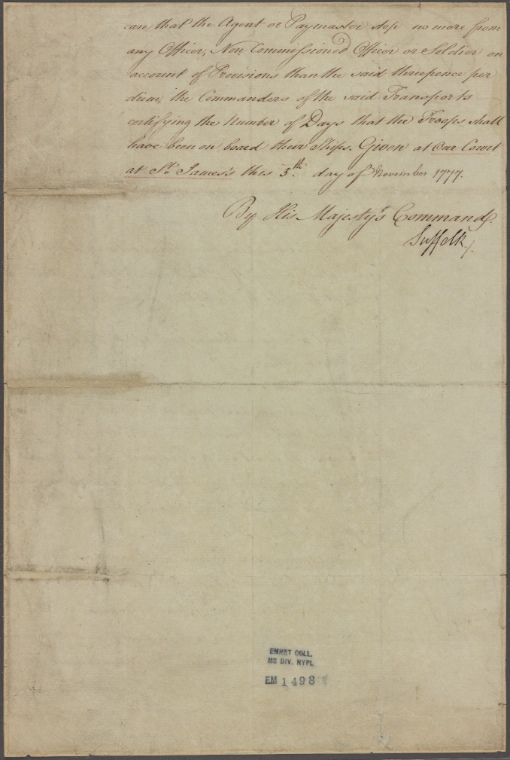 care that the Agent or Paymaster stop no more from
any Officer, Non Commissioned Officer or Soldier on
account of Provisions than the said threepence per
diem, the Commanders of the said Transports
certifying the Number of Days that the Troops shall
have been on board their Ships. Given at Our Court
at St. James's this 5th. day of November 1777.
By His Majesty's Command,
Suffolk
EMMET COLL.
MS DIV. NYPL
EM 1498